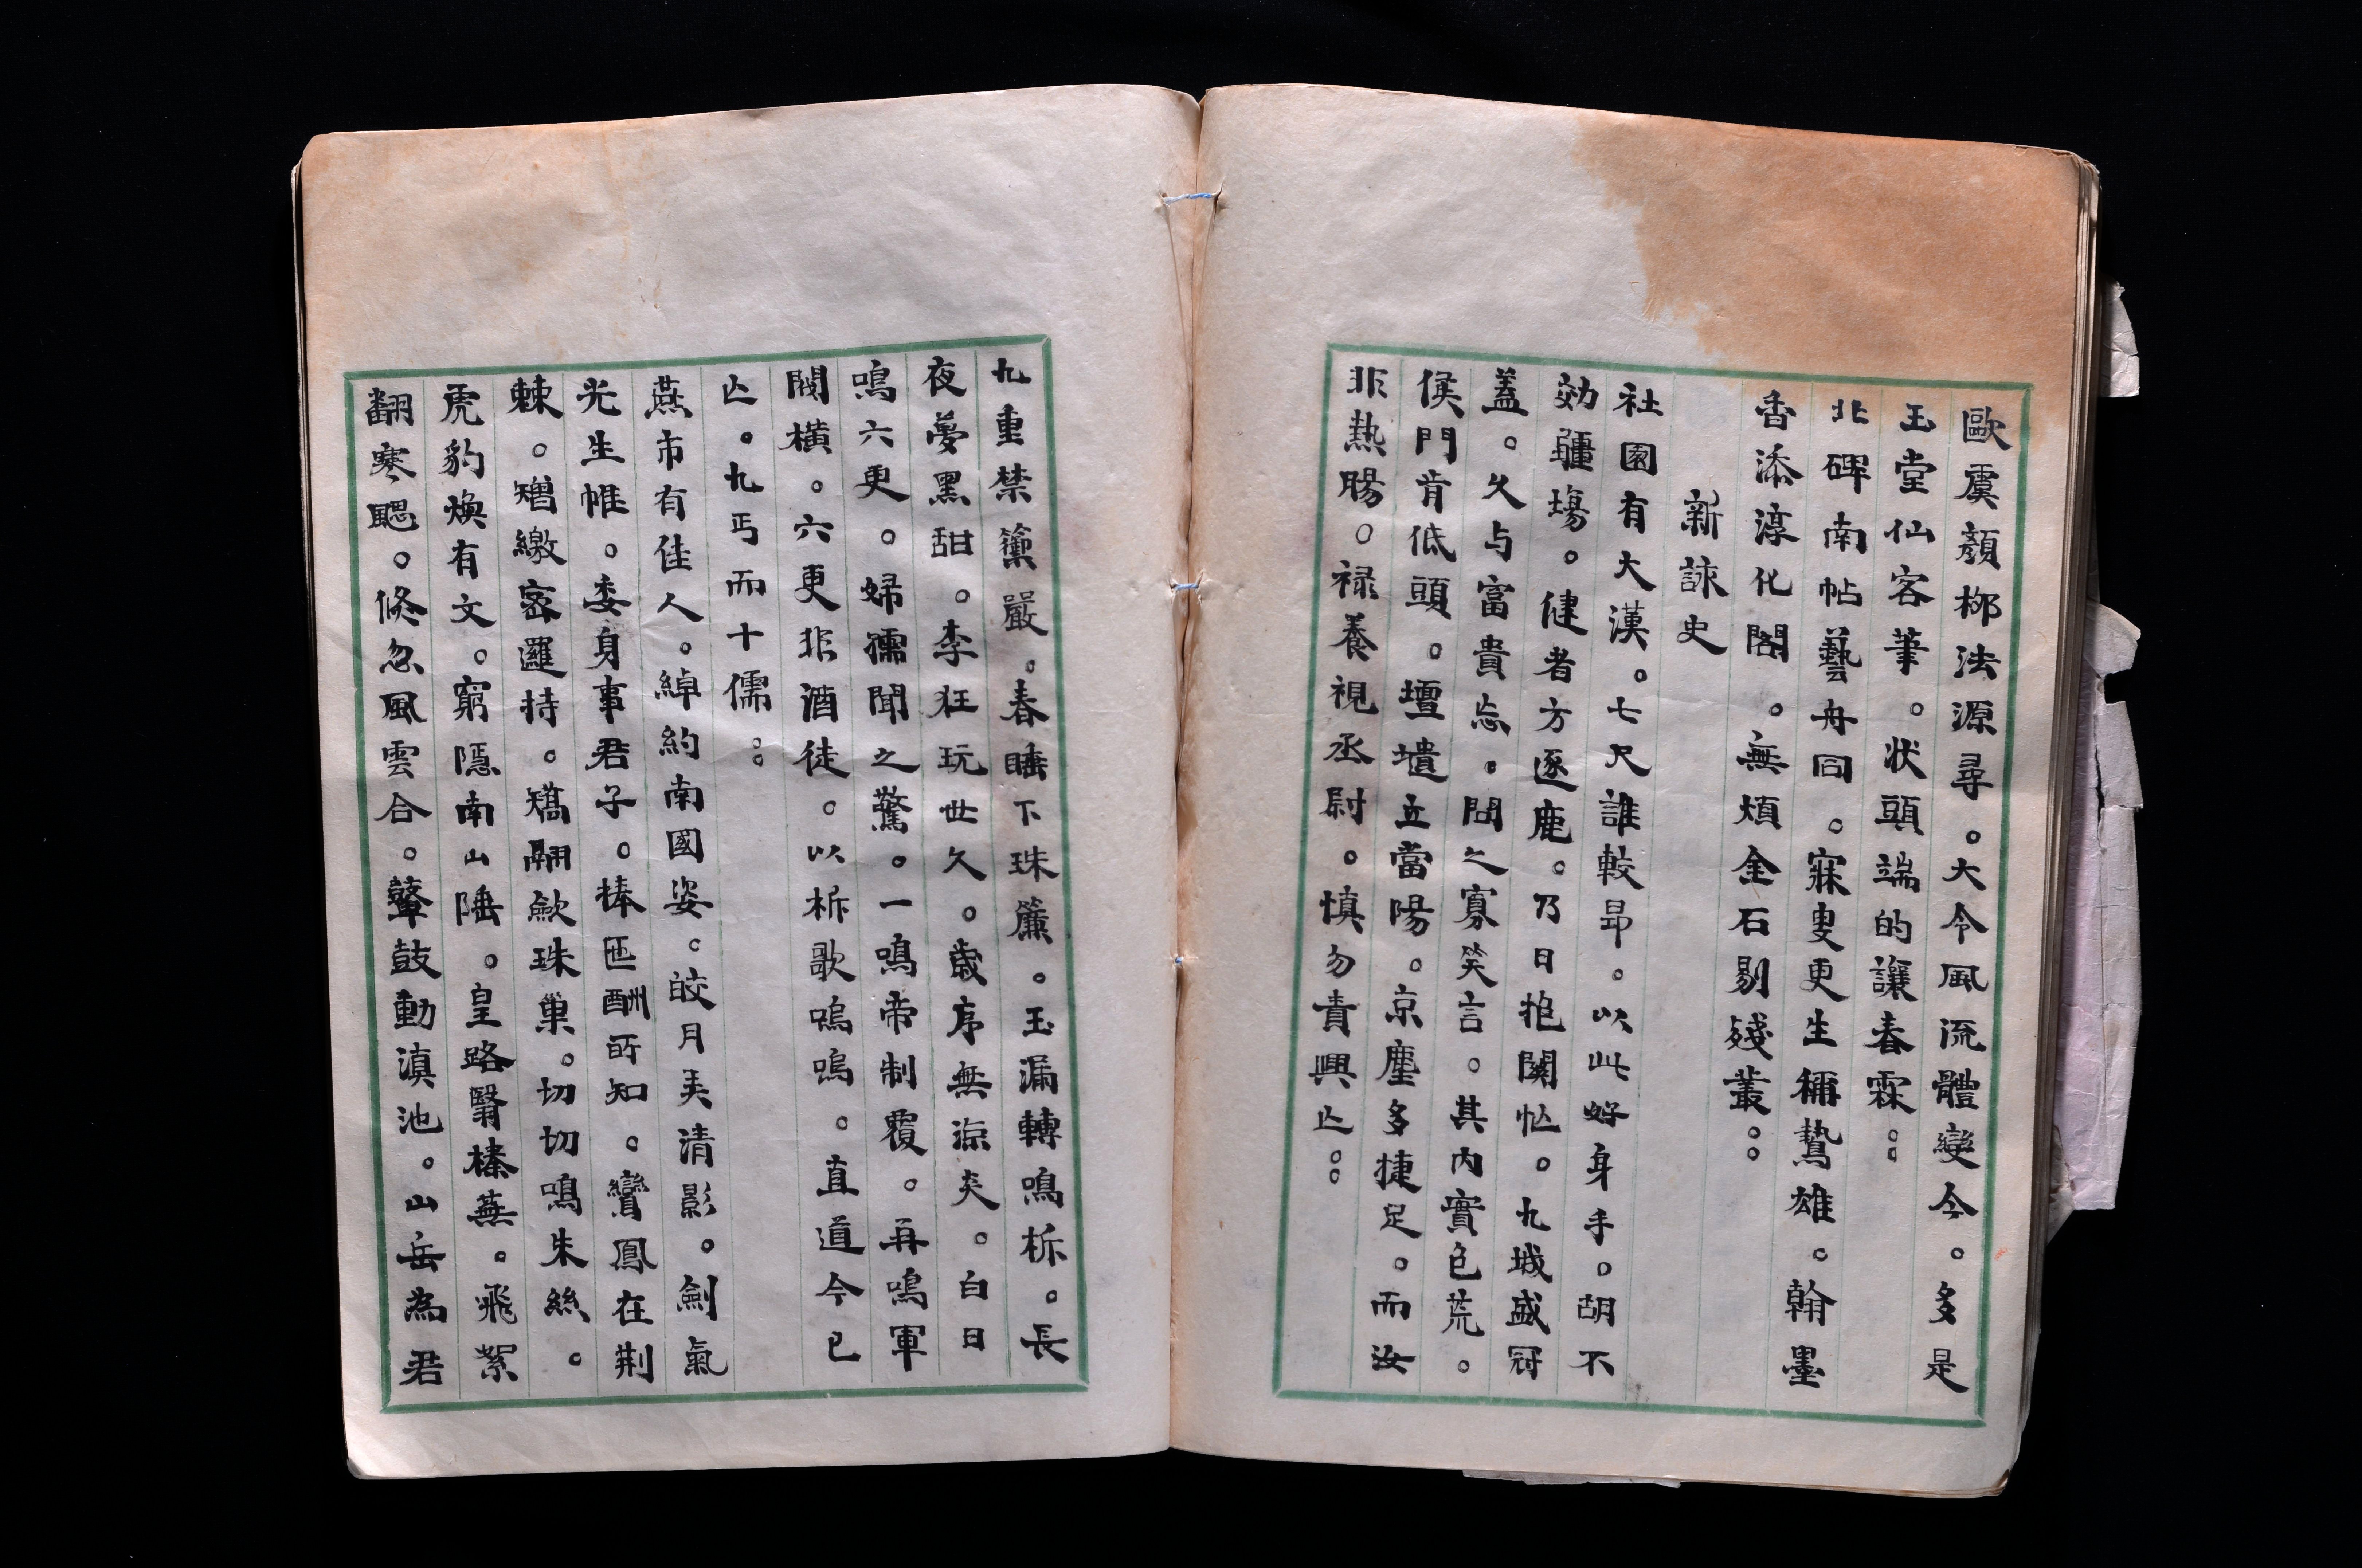 歐虞顏柳法源尋。大令風流體變今。多是
玉堂仙客筆。状頭端的讓春霖。。
北碑南帖藝舟同。寐叟更生稱鷙雄。翰墨
香添淳化閣。無煩金石剔殘叢。。
新詠史
社園有大漢。七尺誰較昂。以此好身手。胡不
効疆場。健者方逐鹿。乃日抱関忙。九城盛冠
蓋。久与富貴忘。問之寡笑言。其内實色荒。
侯門肯低頭。壇壝立當陽。京塵多捷足。而汝
非熱腸。禄養視丞尉。慎勿責興亾。。
九重禁籞嚴。春睡下珠簾。玉漏轉鳴柝。長
夜夢黑甜。李狂玩世久。歲序無涼炎。白日
鳴六更。婦孺聞之驚。一鳴帝制覆。再鳴軍
閥橫。六更非酒徒。以柝歌嗚嗚。直道今已
亾。九丐而十儒。。
燕市有佳人。綽約南國姿。皎月美清影。劍氣
光生帷。委身事君子。捧匜酬所知。鸞鳳在荆
棘。矰繳密邏持。矯翮歛珠巢。切切鳴朱絲。
虎豹煥有文。窮隱南山陲。皇路翳榛蕪。飛絮
翻寒颸。倏忽風雲合。鼙鼓動滇池。山岳為君